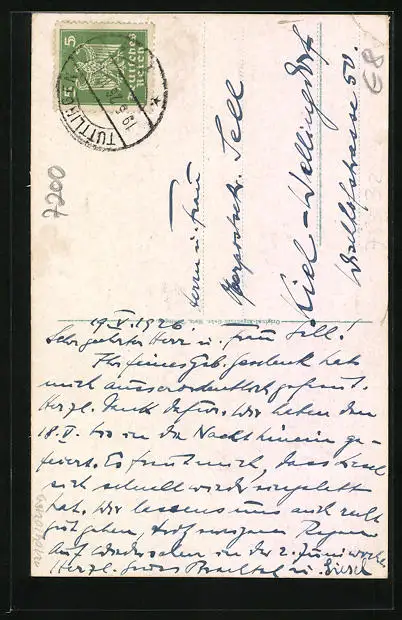 5
Deutsches
Reich
5
TUTTLINGEN
7200
€8
Herrn u. Frau
Sell
Kiel-Wellingdorf
Wahlestrasse 50.
19.V.1926
Sehr geehrter Herr u. Frau Sell!
Ihr feines Geb. Geschenk hat
mich ausserordentlich gefreut.
Herzl. Dank dafür. Wir haben den
18.V. bis in die Nacht hinein ge-
feiert. Es freut mich, dass Liesel
sich schnell wieder eingelebt
hat. Wir lassens uns auch recht
gut gehen, trotz Regen
Auf Wiedersehen in der 2. Juniwoche
Herzl. u. Liesel